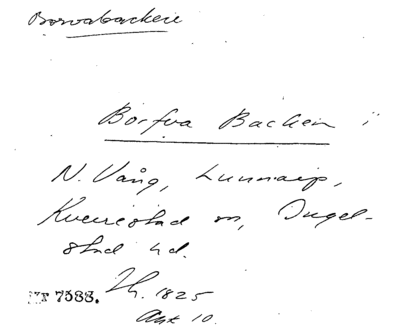 Borvabackere
Borfva Backen i
N. Vång, Lunnarp,
Kverrestad sn, Ingel-
stad hd.
NT 7588. Th. 1825
Akt 10.